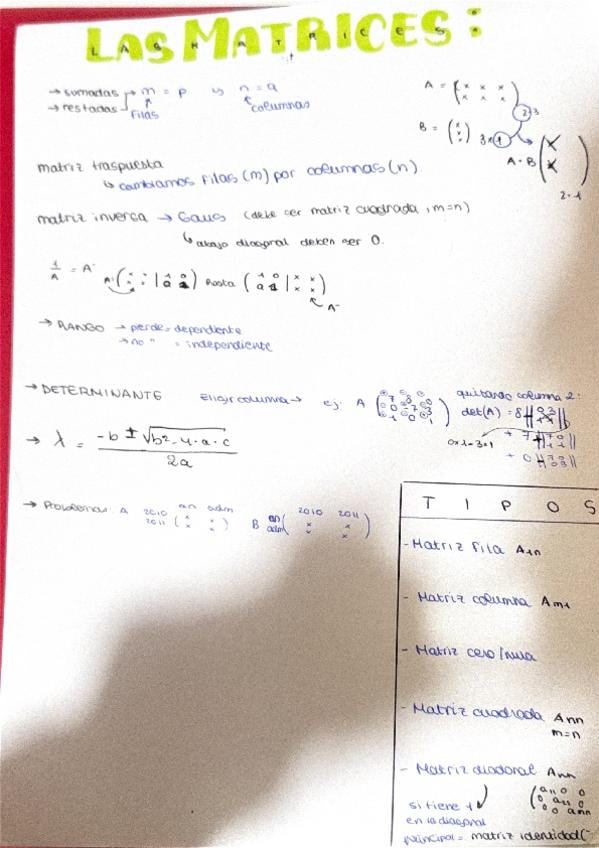 LAS MATRICES:
→ sumadas → m = p y n = q
→ restadas filas columnas
A = (x x x
x x x) 2·3
B = (x
x
x) 3×1
A·B (x
x)
2·1
matriz traspuesta
↳ cambiamos filas (m) por columnas (n).
matriz inversa → Gaus (debe ser matriz cuadrada, m=n)
↳ abajo diagonal deben ser 0.
1/A = A⁻
Hasta
A⁻
→ RANGO → pierde = dependiente
→ no " = independiente
→ DETERMINANTE Elegir columna → ej: A
quitando columna 2:
det(A) = 8
0×1-3×1
+ 7
+ 0
→ λ = -b ± √b²-4·a·c
2a
→ Problemas: A 2010 2011 an adm (x x
x x) B an adm 2010 2011 (x x
x x)
TIPOS
- Matriz fila A1n
- Matriz columna Am1
- Matriz cero/nula
- Matriz cuadrada Ann
m=n
- Matriz diadonal Ann
si tiene 1
en la diagonal
principal = matriz identidad(
(a11 0 0
0 a22 0
0 0 ann)